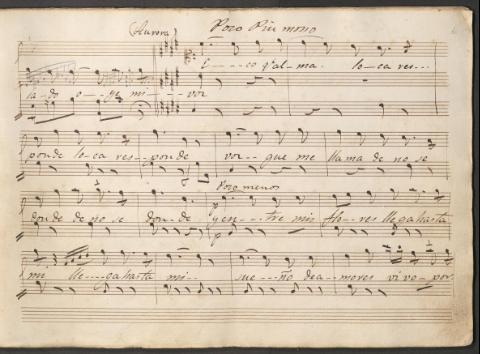 (Aurora) Poco Piu mosso
E---co q'al-ma. lo-ca res---
ta-do o--ye mi--voz
ponde lo-ca res-ponde voz-- que me llama de no se
Poco menos
donde de no se don-de y en---tre mis flo-res llega hasta
mi lle---ga hasta mi-- sue---ño de a-mores vivo-por